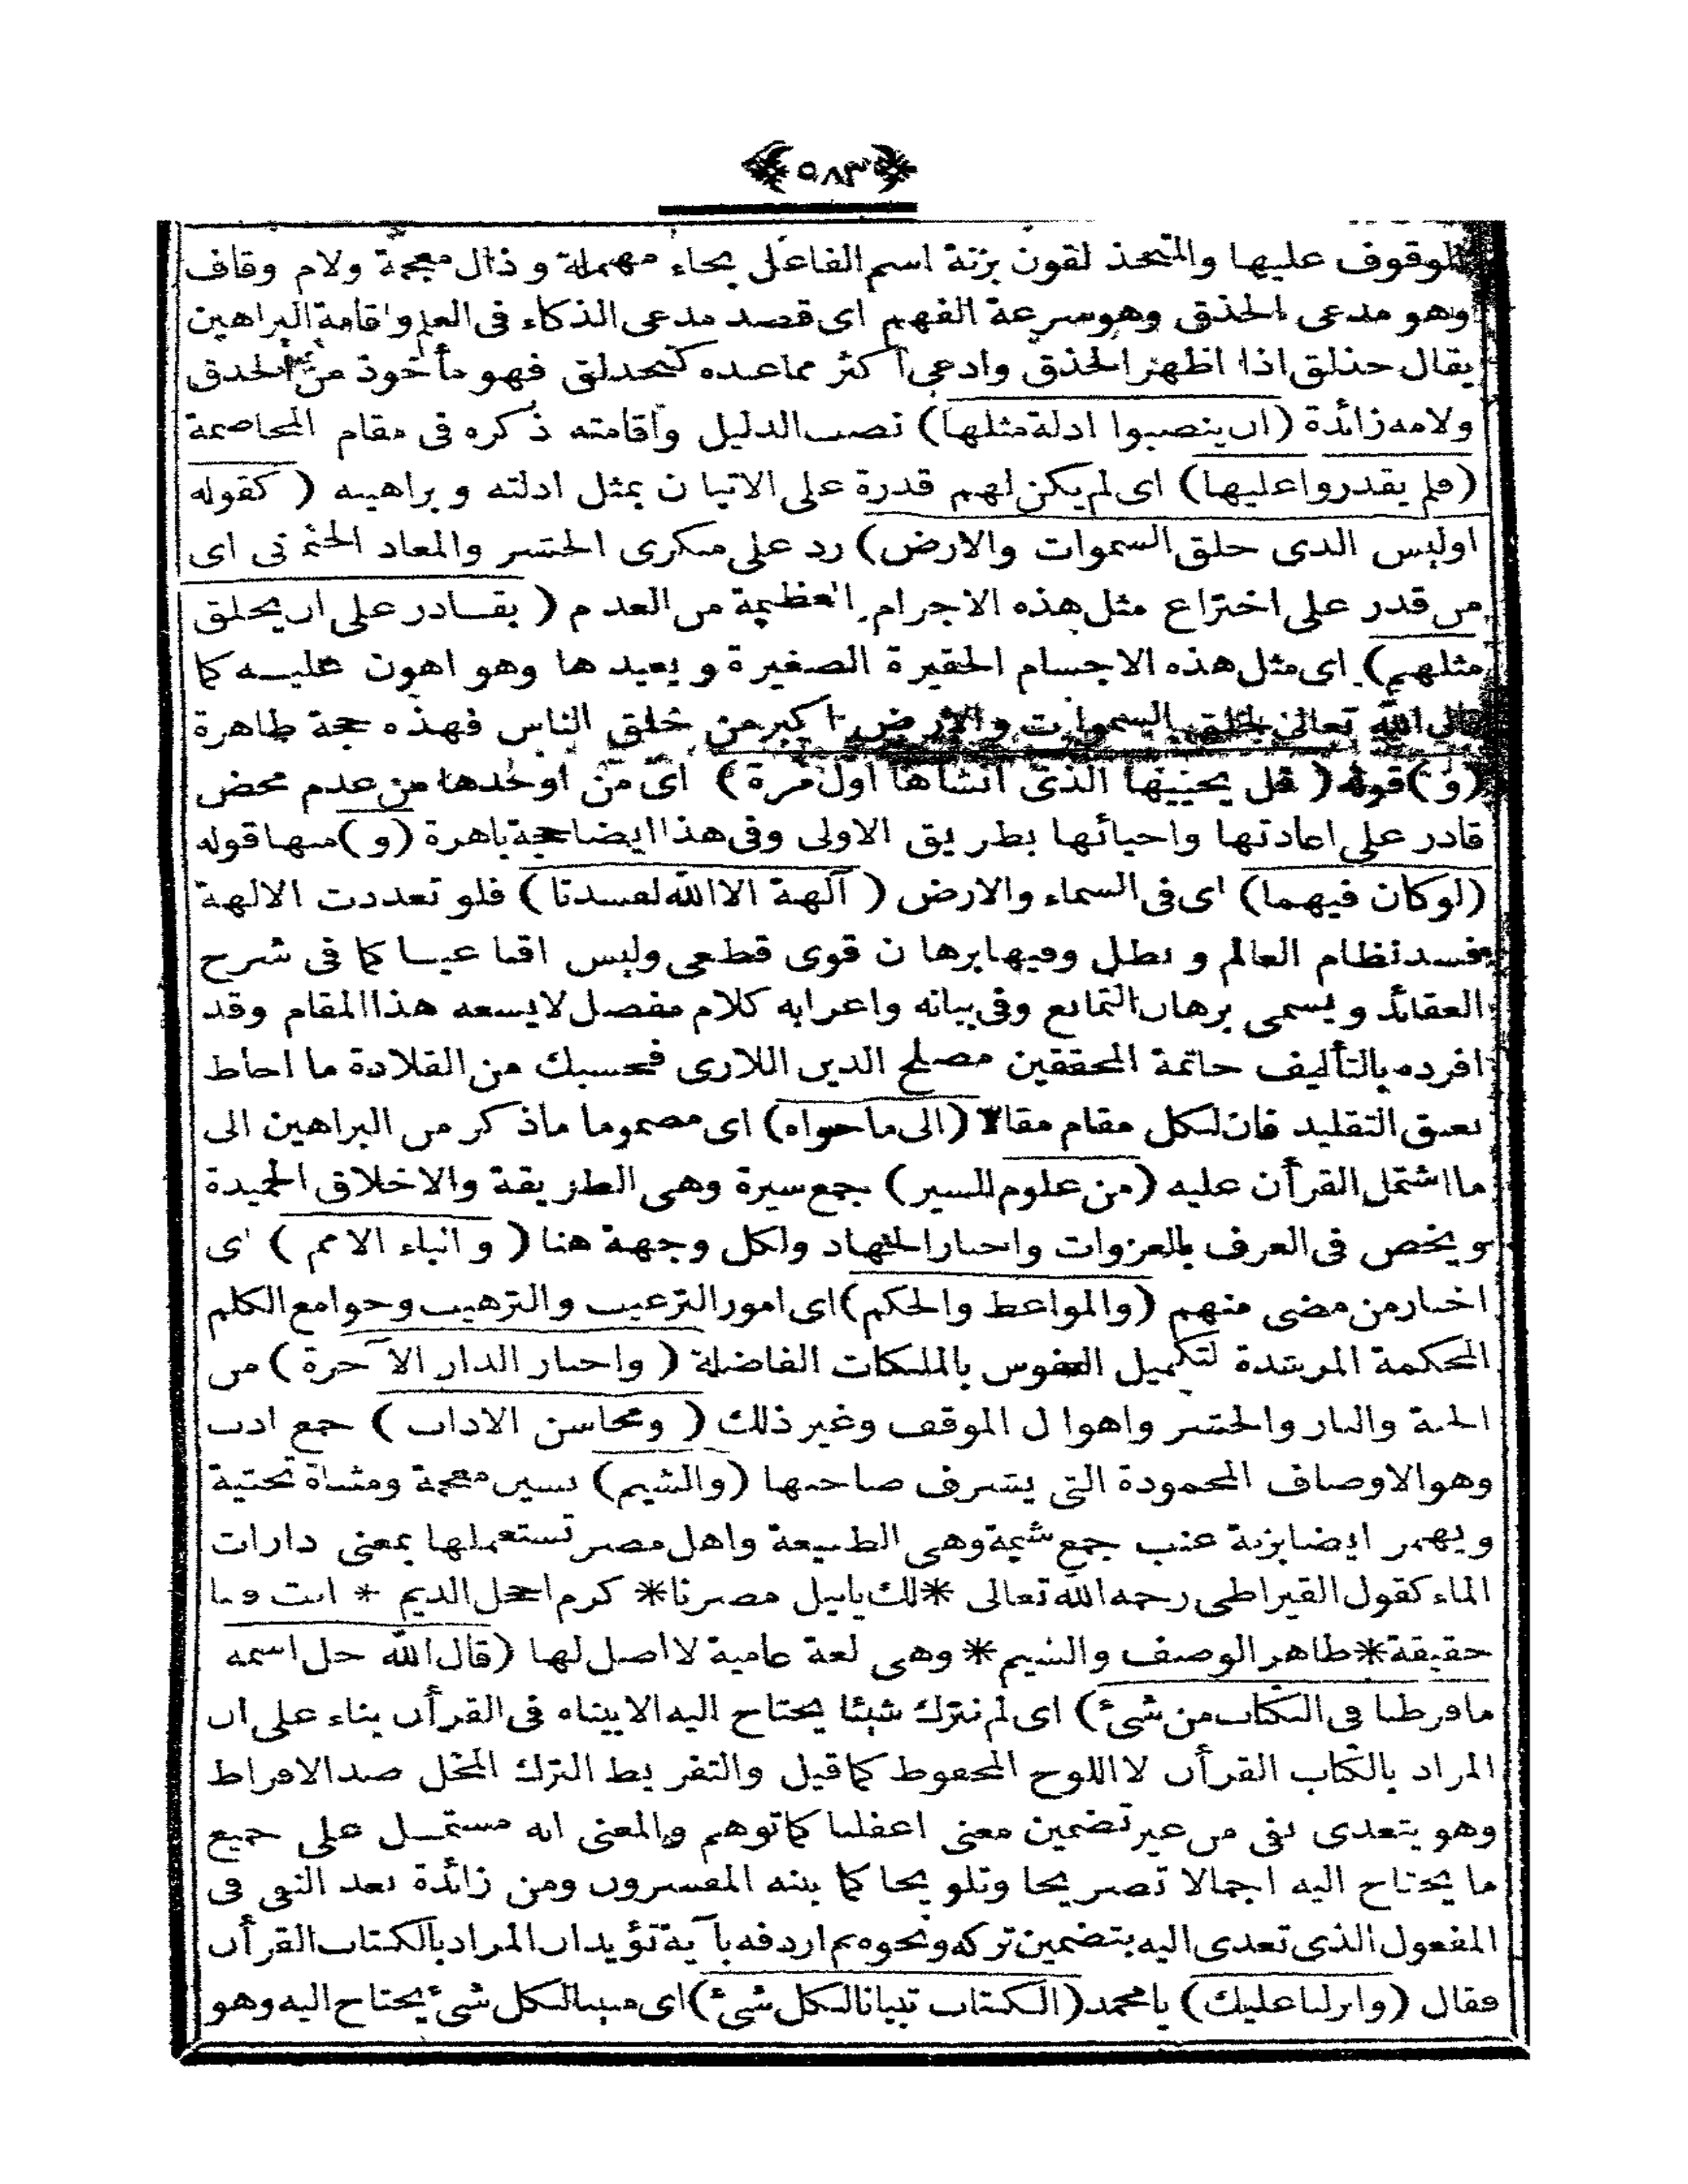 ﴿٥٨٣﴾
للوقوف عليها والمتحذ لقون بزنة اسم الفاعل بحاء مهملة وذال معجمة ولام وقاف
وهو مدعى الحذق وهو سرعة الفهم اى قصد مدعى الذكاء فى العلم واقامة البراهين
يقال حذلق اذا اظهر الحذق وادعى أكثر مما عنده كتحذلق فهو مأخوذ من الحذق
ولامه زائدة (ان ينصبوا ادلة مثلها) نصب الدليل واقامته ذكره فى مقام المخاصمة
(فلم يقدروا عليها) اى لم يكن لهم قدرة على الاتيان بمثل ادلته وبراهينه (كقوله
اوليس الذى خلق السموات والارض) رد على منكرى الحشر والمعاد الجثمانى اى
من قدر على اختراع مثل هذه الاجرام العظيمة من العدم (بقادر على ان يخلق
مثلهم) اى مثل هذه الاجسام الحقيرة الصغيرة ويعيدها وهو اهون عليه كما
قال الله تعالى لخلق السموات والارض اكبر من خلق الناس فهذه حجة ظاهرة
(و) قوله (قل يحييها الذى انشأها اول مرة) اى من اوجدها من عدم محض
قادر على اعادتها واحيائها بطريق الاولى وفى هذا ايضا حجة باهرة (و) منها قوله
(لوكان فيهما) اى فى السماء والارض (آلهة الا الله لفسدتا) فلو تعددت الالهة
فسد نظام العالم وبطل وفيها برهان قوى قطعى وليس اقناعيا كما فى شرح
العقائد ويسمى برهان التمانع وفى بيانه واعرابه كلام مفصل لا يسعه هذا المقام وقد
افرده بالتأليف خاتمة المحققين مصلح الدين اللارى فحسبك من القلادة ما احاط
بعنق التقليد فان لكل مقام مقالا (الى ما حواه) اى مضموما ماذكر من البراهين الى
ما اشتمل القرأن عليه (من علوم السير) بجمع سيرة وهى الطريقة والاخلاق الحميدة
ويخص فى العرف بالغزوات واخبار الجهاد ولكل وجهة هنا (وانباء الامم) اى
اخبار من مضى منهم (والمواعظ والحكم) اى امور الترغيب والترهيب وجوامع الكلم
المحكمة المرشدة لتكميل النفوس بالملكات الفاضلة (واخبار الدار الآخرة) من
الجنة والنار والحشر واهوال الموقف وغير ذلك (ومحاسن الاداب) جمع ادب
وهو الاوصاف المحمودة التى يتشرف صاحبها (والشيم) بشين معجمة ومثناة تحتية
ويهمز ايضا بزنة عنب جمع شيمة وهى الطبيعة واهل مصر تستعملها بمعنى دارات
الماء كقول القيراطى رحمه الله تعالى *لك يانيل مصرنا* كرم اخجل الديم * انت فينا
حقيقة*طاهر الوصف والشيم* وهى لغة عامية لا اصل لها (قال الله جل اسمه
مافرطنا فى الكتاب من شئ) اى لم نترك شيئا يحتاج اليه الا بيناه فى القرأن بناء على ان
المراد بالكتاب القرأن لا اللوح المحفوظ كما قيل والتفريط الترك المخل ضد الافراط
وهو يتعدى بفى من غير تضمين معنى اغفلنا كما توهم والمعنى انه مشتمل على جميع
ما يحتاج اليه اجمالا تصريحا وتلويحا كما بينه المفسرون ومن زائدة بعد النفى فى
المفعول الذى تعدى اليه بتضمين تركه ونحوه ثم اردفه بآية تؤيد ان المراد بالكتاب القرأن
فقال (وانزلنا عليك) يا محمد (الكتاب تبيانا لكل شئ) اى مبينا لكل شئ يحتاج اليه وهو